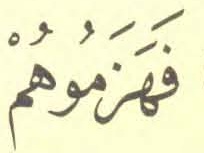 فَهَزَمُوهُمْ